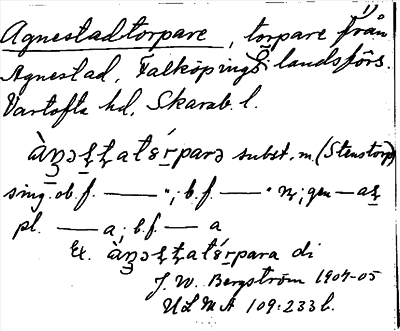 Agnestadtorpare, torpare från
Agnestad, Falköpings landsförs.
Vartofta hd, Skarab. l.
subst. m. (Stenstorp)
sing. ob. f. —— ; b. f. —— ; gen —
pl. —— a; b. f. —— a
Ex. di
J. W. Bergström 1904-05
ULMA 109:233 b.